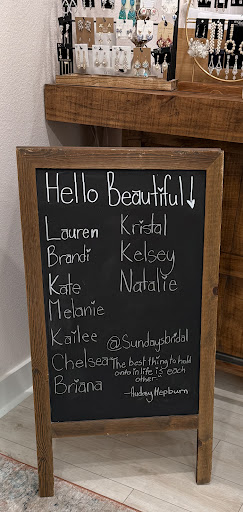 Hello Beautiful! ↓
Lauren
Brandi
Kate
Melanie
Kailee
Chelsea
Briana
Kristal
Kelsey
Natalie
@Sundaysbridal
The best thing to hold
onto in life is each
other.
-Audrey Hepburn